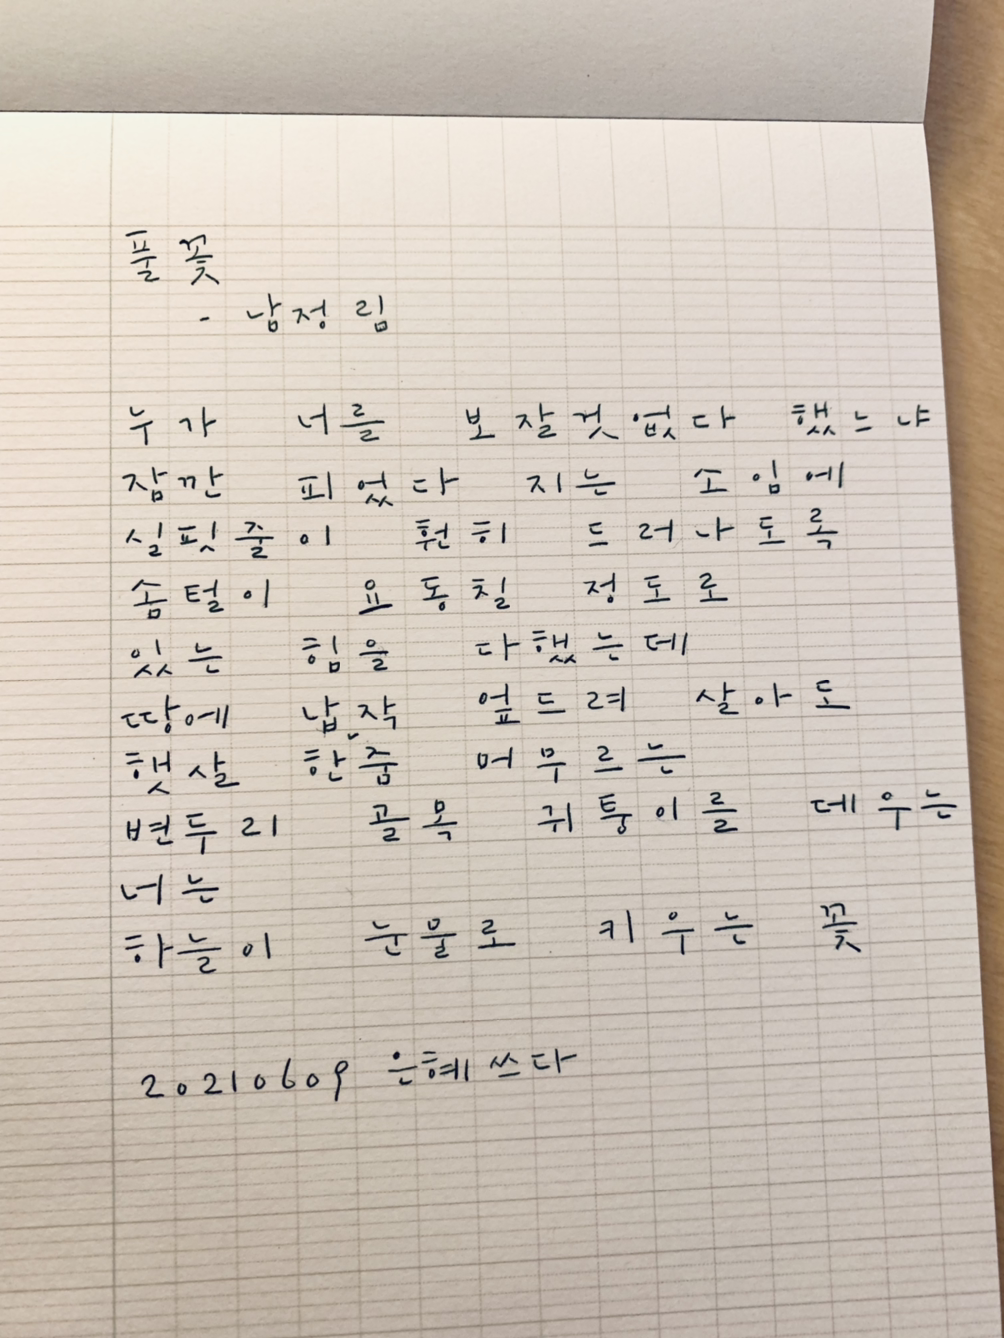 풀꽃
- 남정림
누가 너를 보잘것없다 했느냐
잠깐 피었다 지는 소임에
실핏줄이 훤히 드러나도록
솜털이 요동칠 정도로
있는 힘을 다했는데
땅에 납작 엎드려 살아도
햇살 한줌 머무르는
변두리 골목 귀퉁이를 데우는
너는
하늘이 눈물로 키우는 꽃
20210609 은혜쓰다